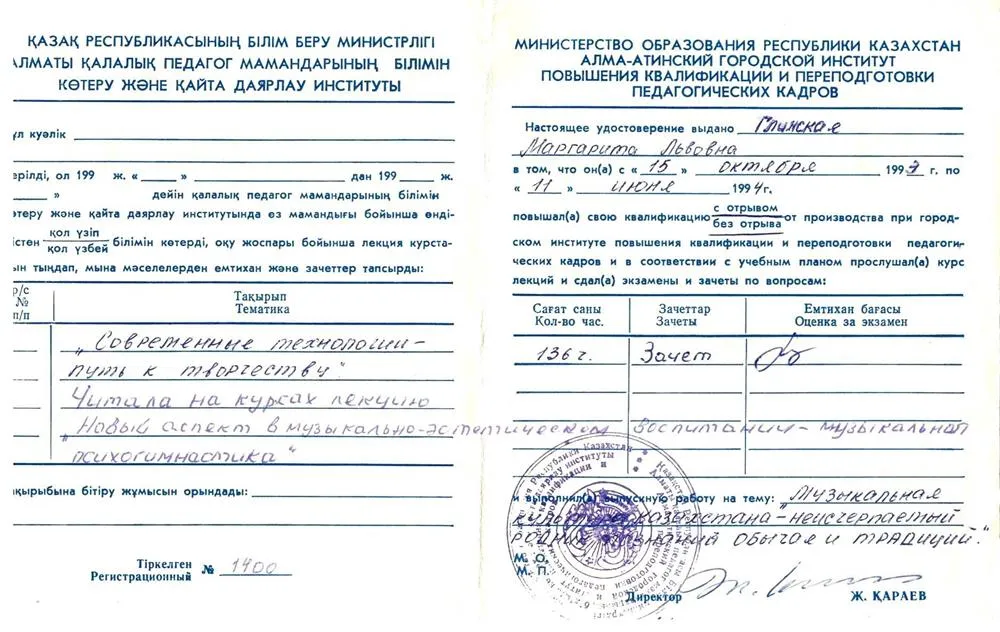 ҚАЗАҚ РЕСПУБЛИКАСЫНЫҢ БІЛІМ БЕРУ МИНИСТРЛІГІ
АЛМАТЫ ҚАЛАЛЫҚ ПЕДАГОГ МАМАНДАРЫНЫҢ БІЛІМІН
КӨТЕРУ ЖӘНЕ ҚАЙТА ДАЯРЛАУ ИНСТИТУТЫ
ұл куәлік
ерілді, ол 199 ж. « » дан 199 ж.
» дейін қалалық педагог мамандарының білімін
өтеру және қайта даярлау институтында өз мамандығы бойынша өнді-
істен қол үзіп
қол үзбей білімін көтерді, оқу жоспары бойынша лекция курста-
ын тыңдап, мына мәселелерден емтихан және зачеттер тапсырды:
р/с
№
п/п
Тақырып
Тематика
„Современные технологии-
путь к творчеству"
Читала на курсах лекцию
„Новый аспект в музыкально-эстетическом воспитании - музыкальная
психогимнастика"
қырыбына бітіру жұмысын орындады:
Тіркелген
Регистрационный № 1400
МИНИСТЕРСТВО ОБРАЗОВАНИЯ РЕСПУБЛИКИ КАЗАХСТАН
АЛМА-АТИНСКИЙ ГОРОДСКОЙ ИНСТИТУТ
ПОВЫШЕНИЯ КВАЛИФИКАЦИИ И ПЕРЕПОДГОТОВКИ
ПЕДАГОГИЧЕСКИХ КАДРОВ
Настоящее удостоверение выдано Глинская
Маргарита Львовна
в том, что он(а) с « 15 » октября 1993 г. по
« 11 » июня 1994 г.
повышал(а) свою квалификацию с отрывом
без отрыва от производства при город-
ском институте повышения квалификации и переподготовки педагоги-
ческих кадров и в соответствии с учебным планом прослушал(а) курс
лекций и сдал(а) экзамены и зачеты по вопросам:
Сағат саны
Кол-во час.
Зачеттар
Зачеты
Емтихан бағасы
Оценка за экзамен
136 г. Зачет
и выполнил(а) выпускную работу на тему: „Музыкальная
культура Казахстана - неисчерпаемый
родник познаний обычая и традиций."
М. О.
М. П.
Директор Ж. ҚАРАЕВ